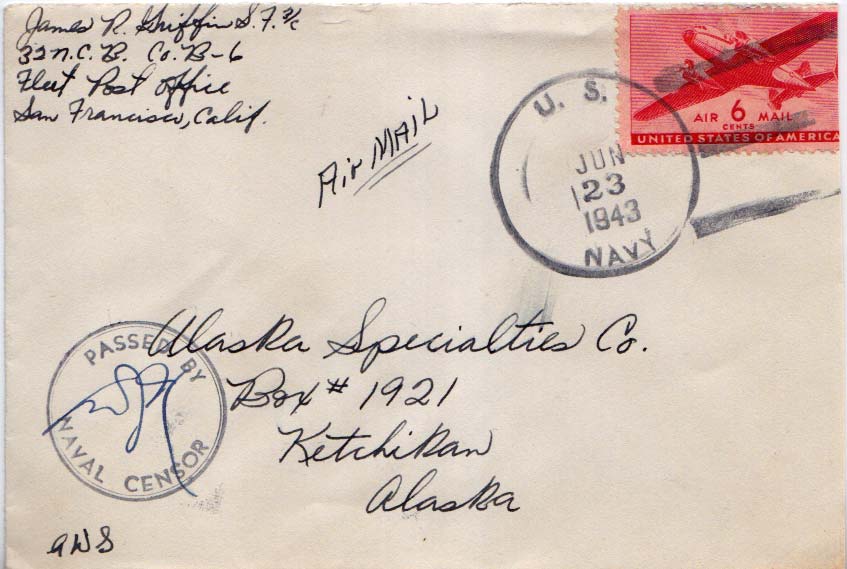 James R. Griffin S.F. 3/c
32 N.C.B. Co. B-6
Fleet Post Office
San Francisco, Calif.
Air MAIL
AIR 6 MAIL
CENTS
UNITED STATES OF AMERICA
U. S.
JUN
23
1943
NAVY
PASSED BY
NAVAL CENSOR
Alaska Specialties Co.
Box # 1921
Ketchikan
Alaska